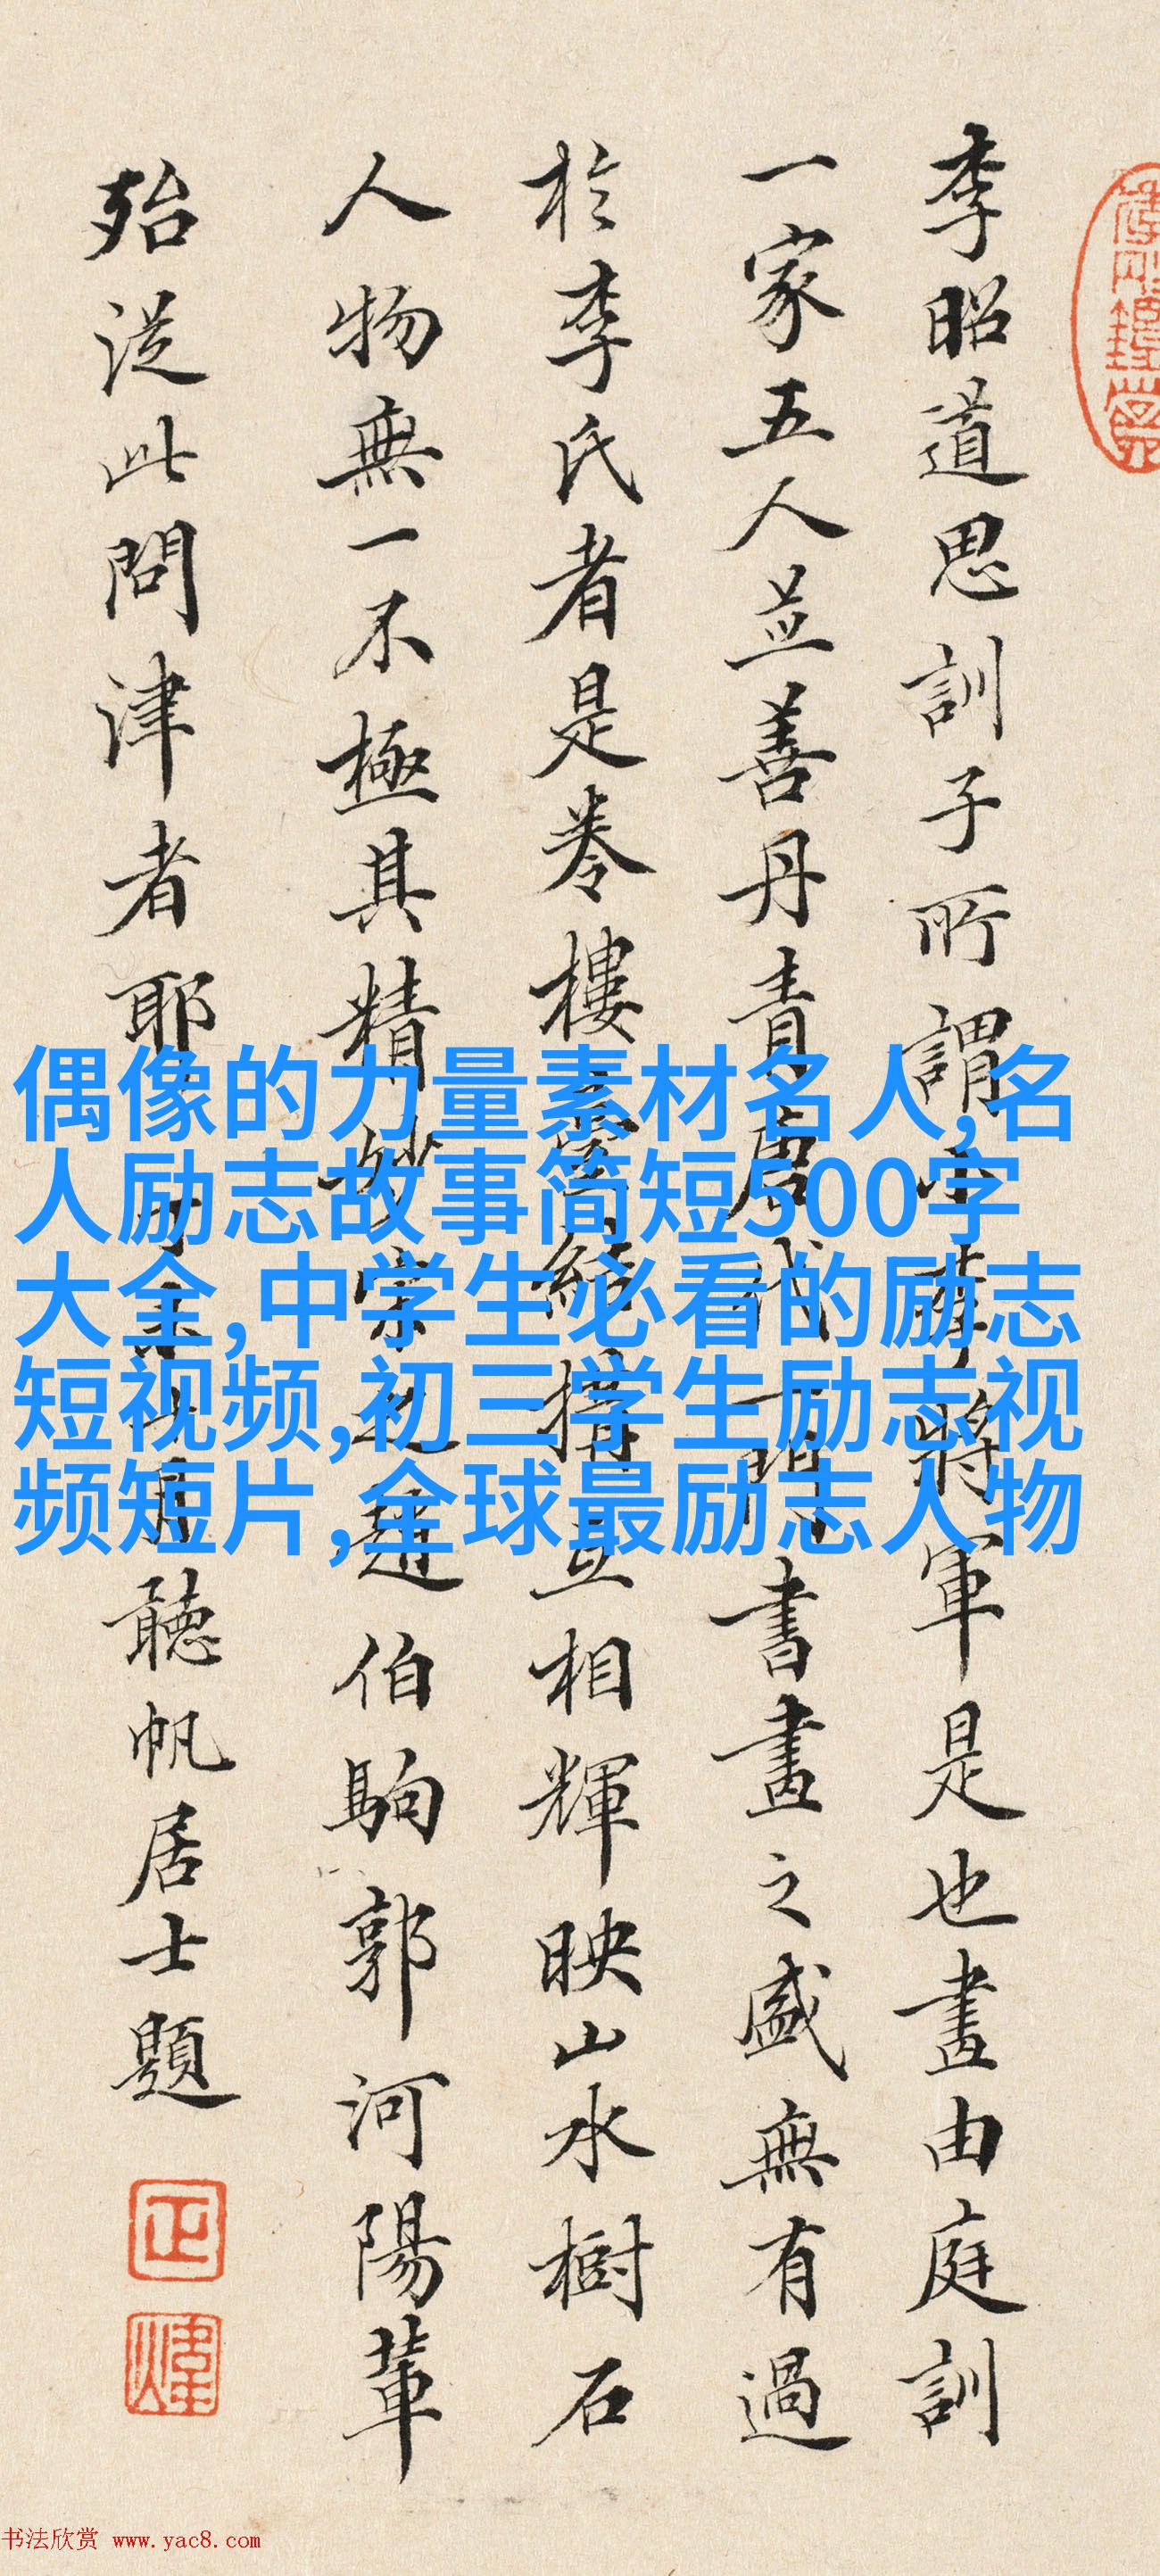 李昭道思訓子所謂小李將軍是也畫由庭訓
一家五人並善丹青唐代一門書畫之盛無有過
於李氏者是卷樓臺結搆互相輝映山水樹石
人物無一不極其精妙宋之趙伯駒郭河陽輩
殆從此問津者耶
聽帆居士題
偶像的力量素材名人,名
人励志故事简短500字
大全,中学生必看的励志
短视频,初三学生励志视
频短片,全球最励志人物
书法欣赏 www.yac8.com